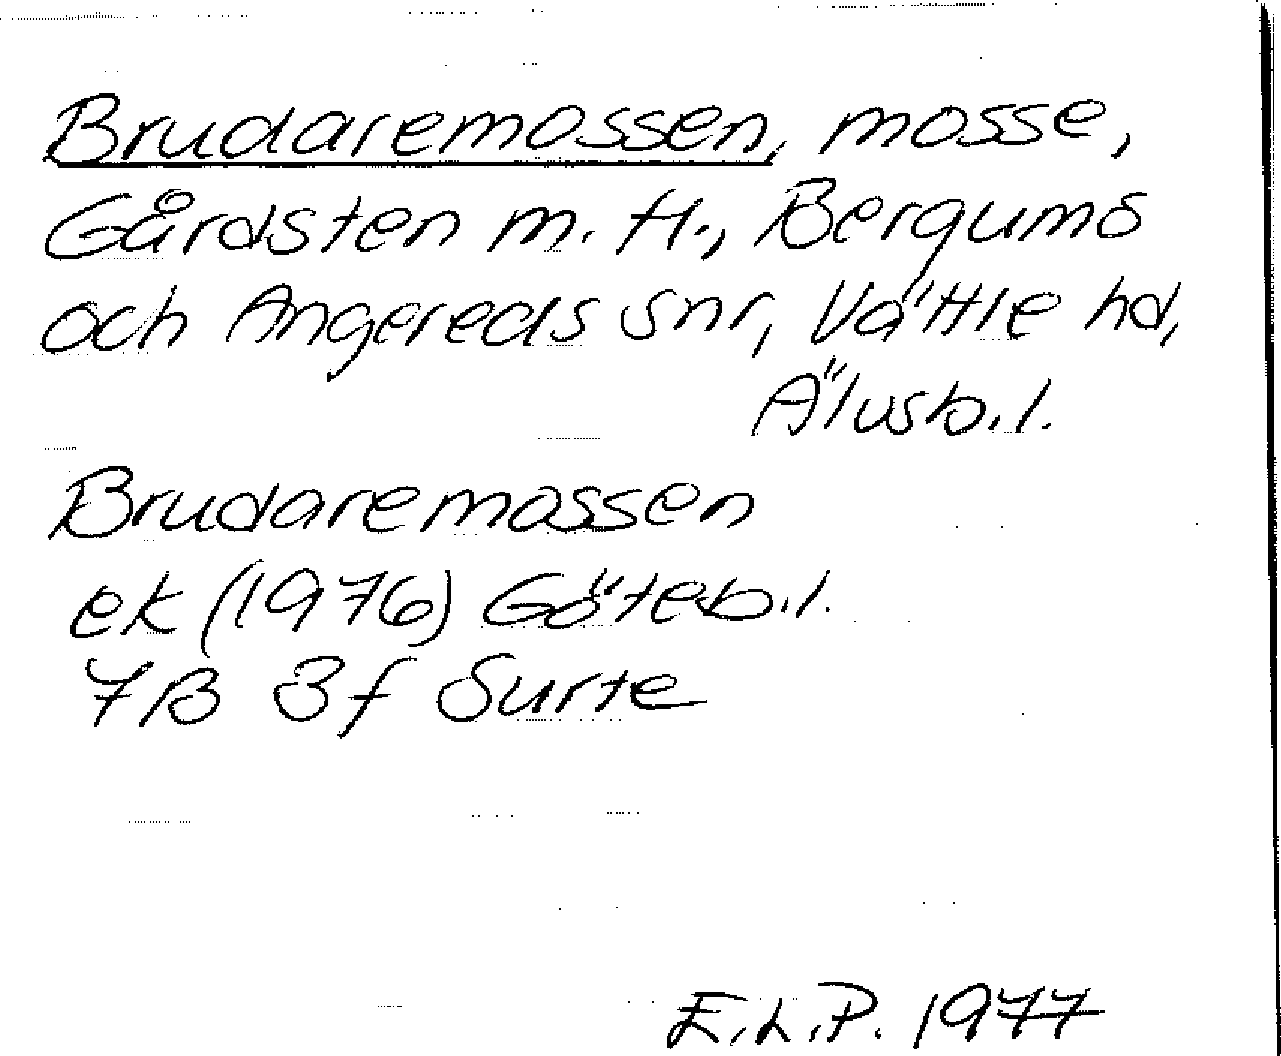 Brudaremossen, mosse,
Gårdsten m. fl., Bergums
och Angereds snr, Vättle hd,
Älvsb. l.
Brudaremossen
ek (1976) Göteb. l.
7B 3f Surte
E.L.P. 1977